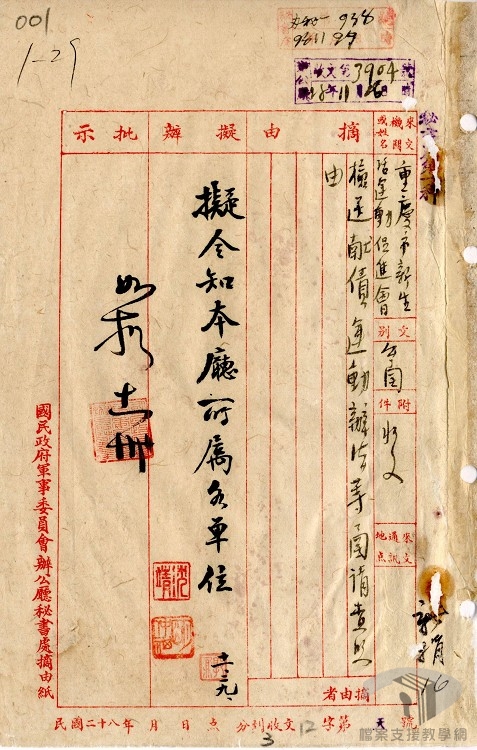 001
1-29
938
收文 字 3904 號
28年11月 日
來文機關或姓名
重慶市新生
活運動促進會
文別
公函
附件
收文
來文通訊地點
摘由
檢送献債運動辦法等函請查照
由
摘由者
擬辦
擬令知本廳所屬各單位
批示
如擬
國民政府軍事委員會辦公廳秘書處摘由紙
民國二十八年 月 日 點 分到收文 字第 號
12
3
16
檔案支援教學網